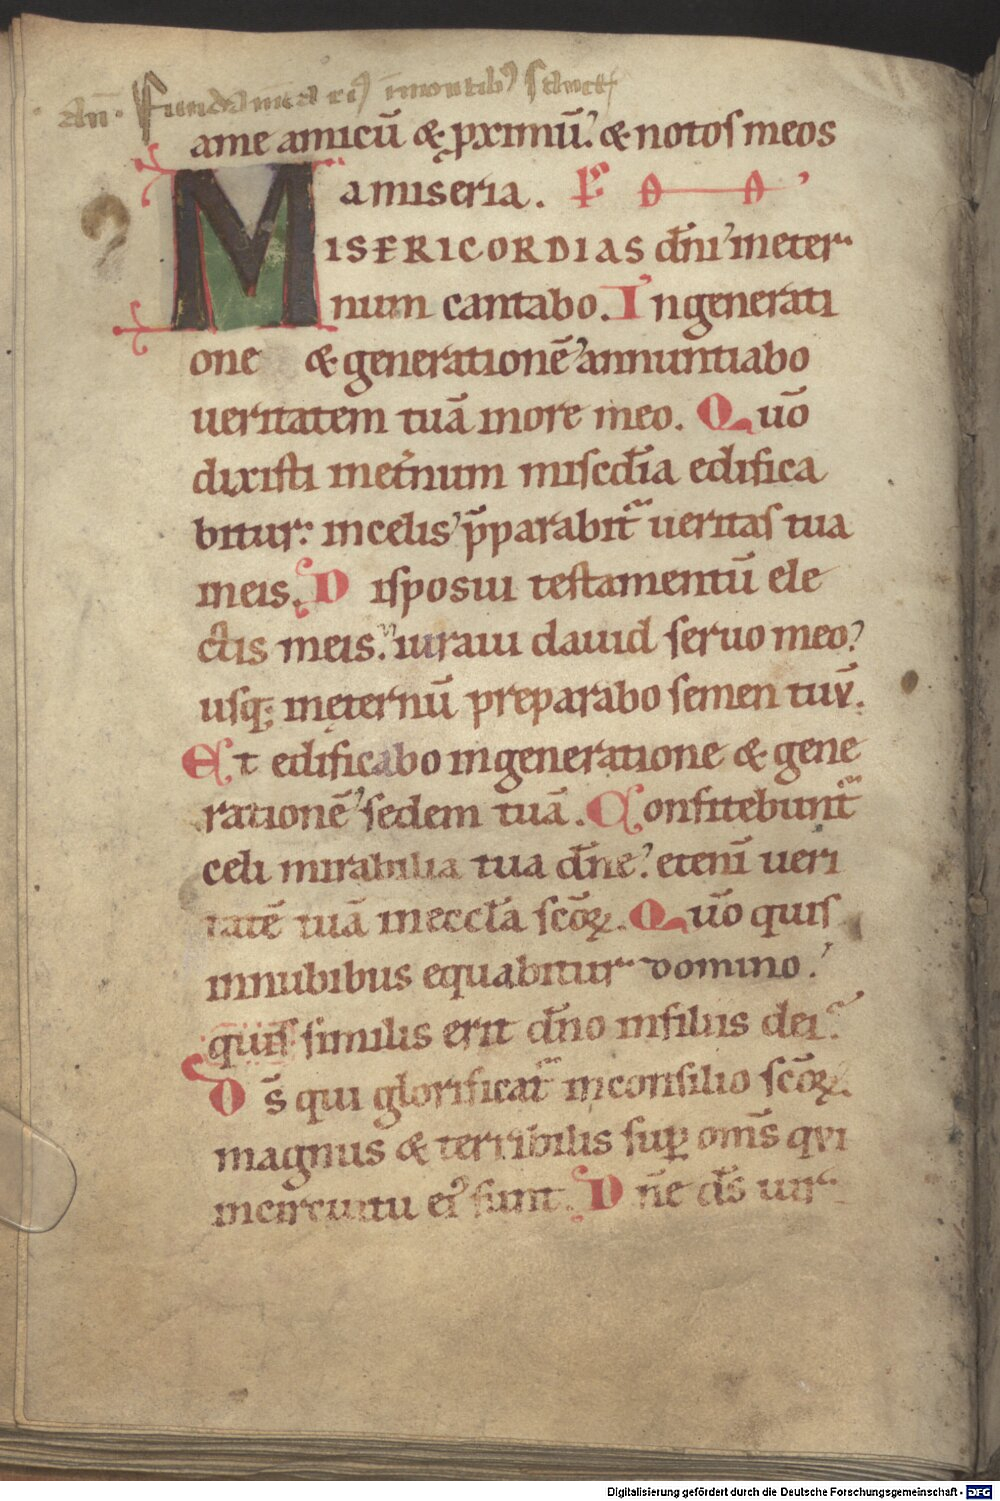 an̄. Fundamta ei⁹ ī montib⁹ sanct
a me amicū & p̱ximū. & notos meos
a miseria. F a a
MISERICORDIAS dn̄i ineter
num cantabo. In generati
one & generationē annuntiabo
ueritatem tuā in ore meo. Quō
dixisti inet̄num misc̄dia edifica
bitur: in celis p̄parabit᷑ ueritas tua
in eis. Disposui testamentū ele
ctis meis. iuraui dauid seruo meo
usq; inęternū preparabo semen tuū.
Et edificabo in generatione & gene
rationē sedem tuā. Confitebunt᷑
celi mirabilia tua dn̄e. etenī ueri
tatē tuā in eccl̄a sc̄oꝝ. Quō quis
in nubibus equabitur domino.
quis similis erit dn̄o in filiis dei.
Ds̄ qui glorificat᷑ in consilio sc̄oꝝ.
magnus & terribilis sup̱ om̄s qui
in circuitu ei⁹ sunt. Dn̄e ds̄ uir
Digitalisierung gefördert durch die Deutsche Forschungsgemeinschaft - DFG